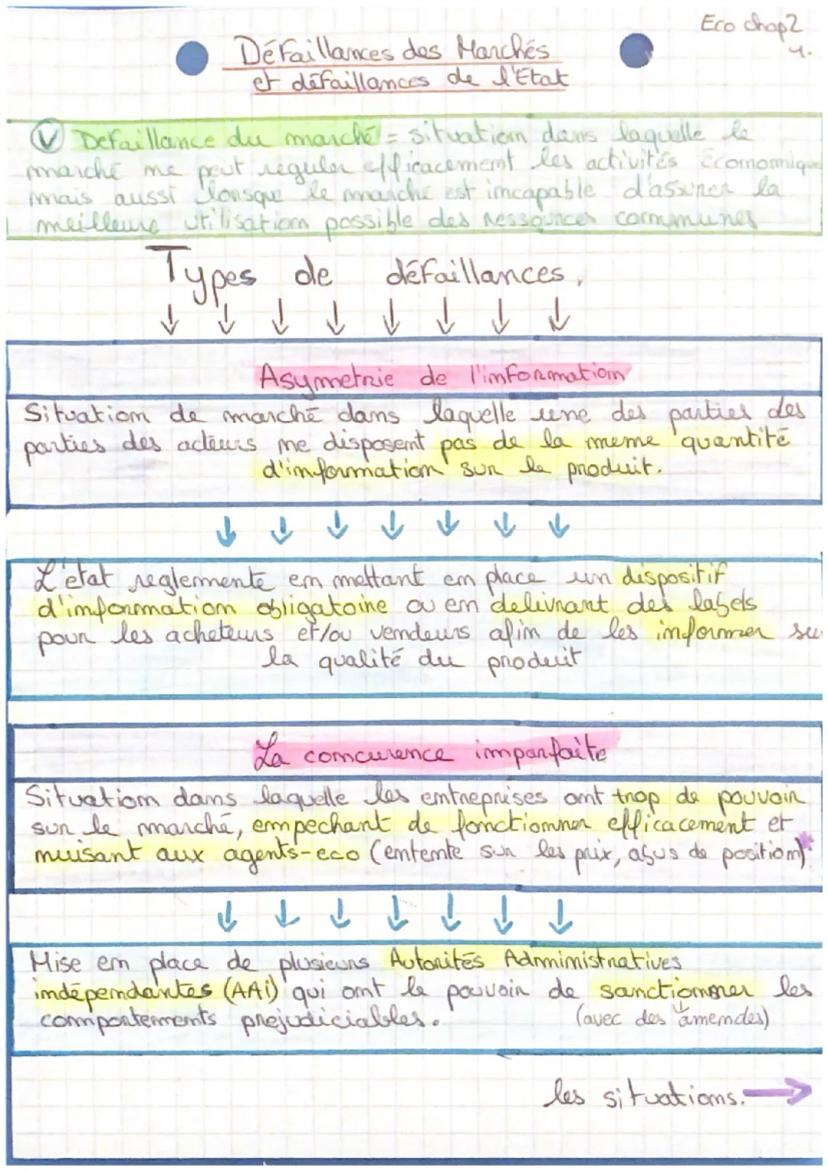 Eco chap2
1.
Défaillances des Marchés
et défaillances de l'Etat
V Défaillance du marché = situation dans laquelle le
marché ne peut réguler efficacement les activités économique
mais aussi lorsque le marché est incapable d'assurer la
meilleure utilisation possible des ressources communes
Types de défaillances.
Asymetrie de l'information
Situation de marché dans laquelle une des parties des
parties des acteurs ne disposent pas de la meme quantité
d'information sur le produit.
L'état reglemente en mettant en place un dispositif
d'information obligatoire ou en delivrant des labels
pour les acheteurs et/ou vendeurs afin de les informer su
la qualité du produit
La concurence imparfaite
Situation dans laquelle les entreprises ont trop de pouvoir
sur le marché, empechant de fonctionner efficacement et
nuisant aux agents-eco (entente sur les prix, abus de position)*
Mise en place de plusieurs Autorités Administratives
indépendantes (AAi) qui ont le pouvoir de sanctionner les
comportements prejudiciables. (avec des amendes)
les situations.